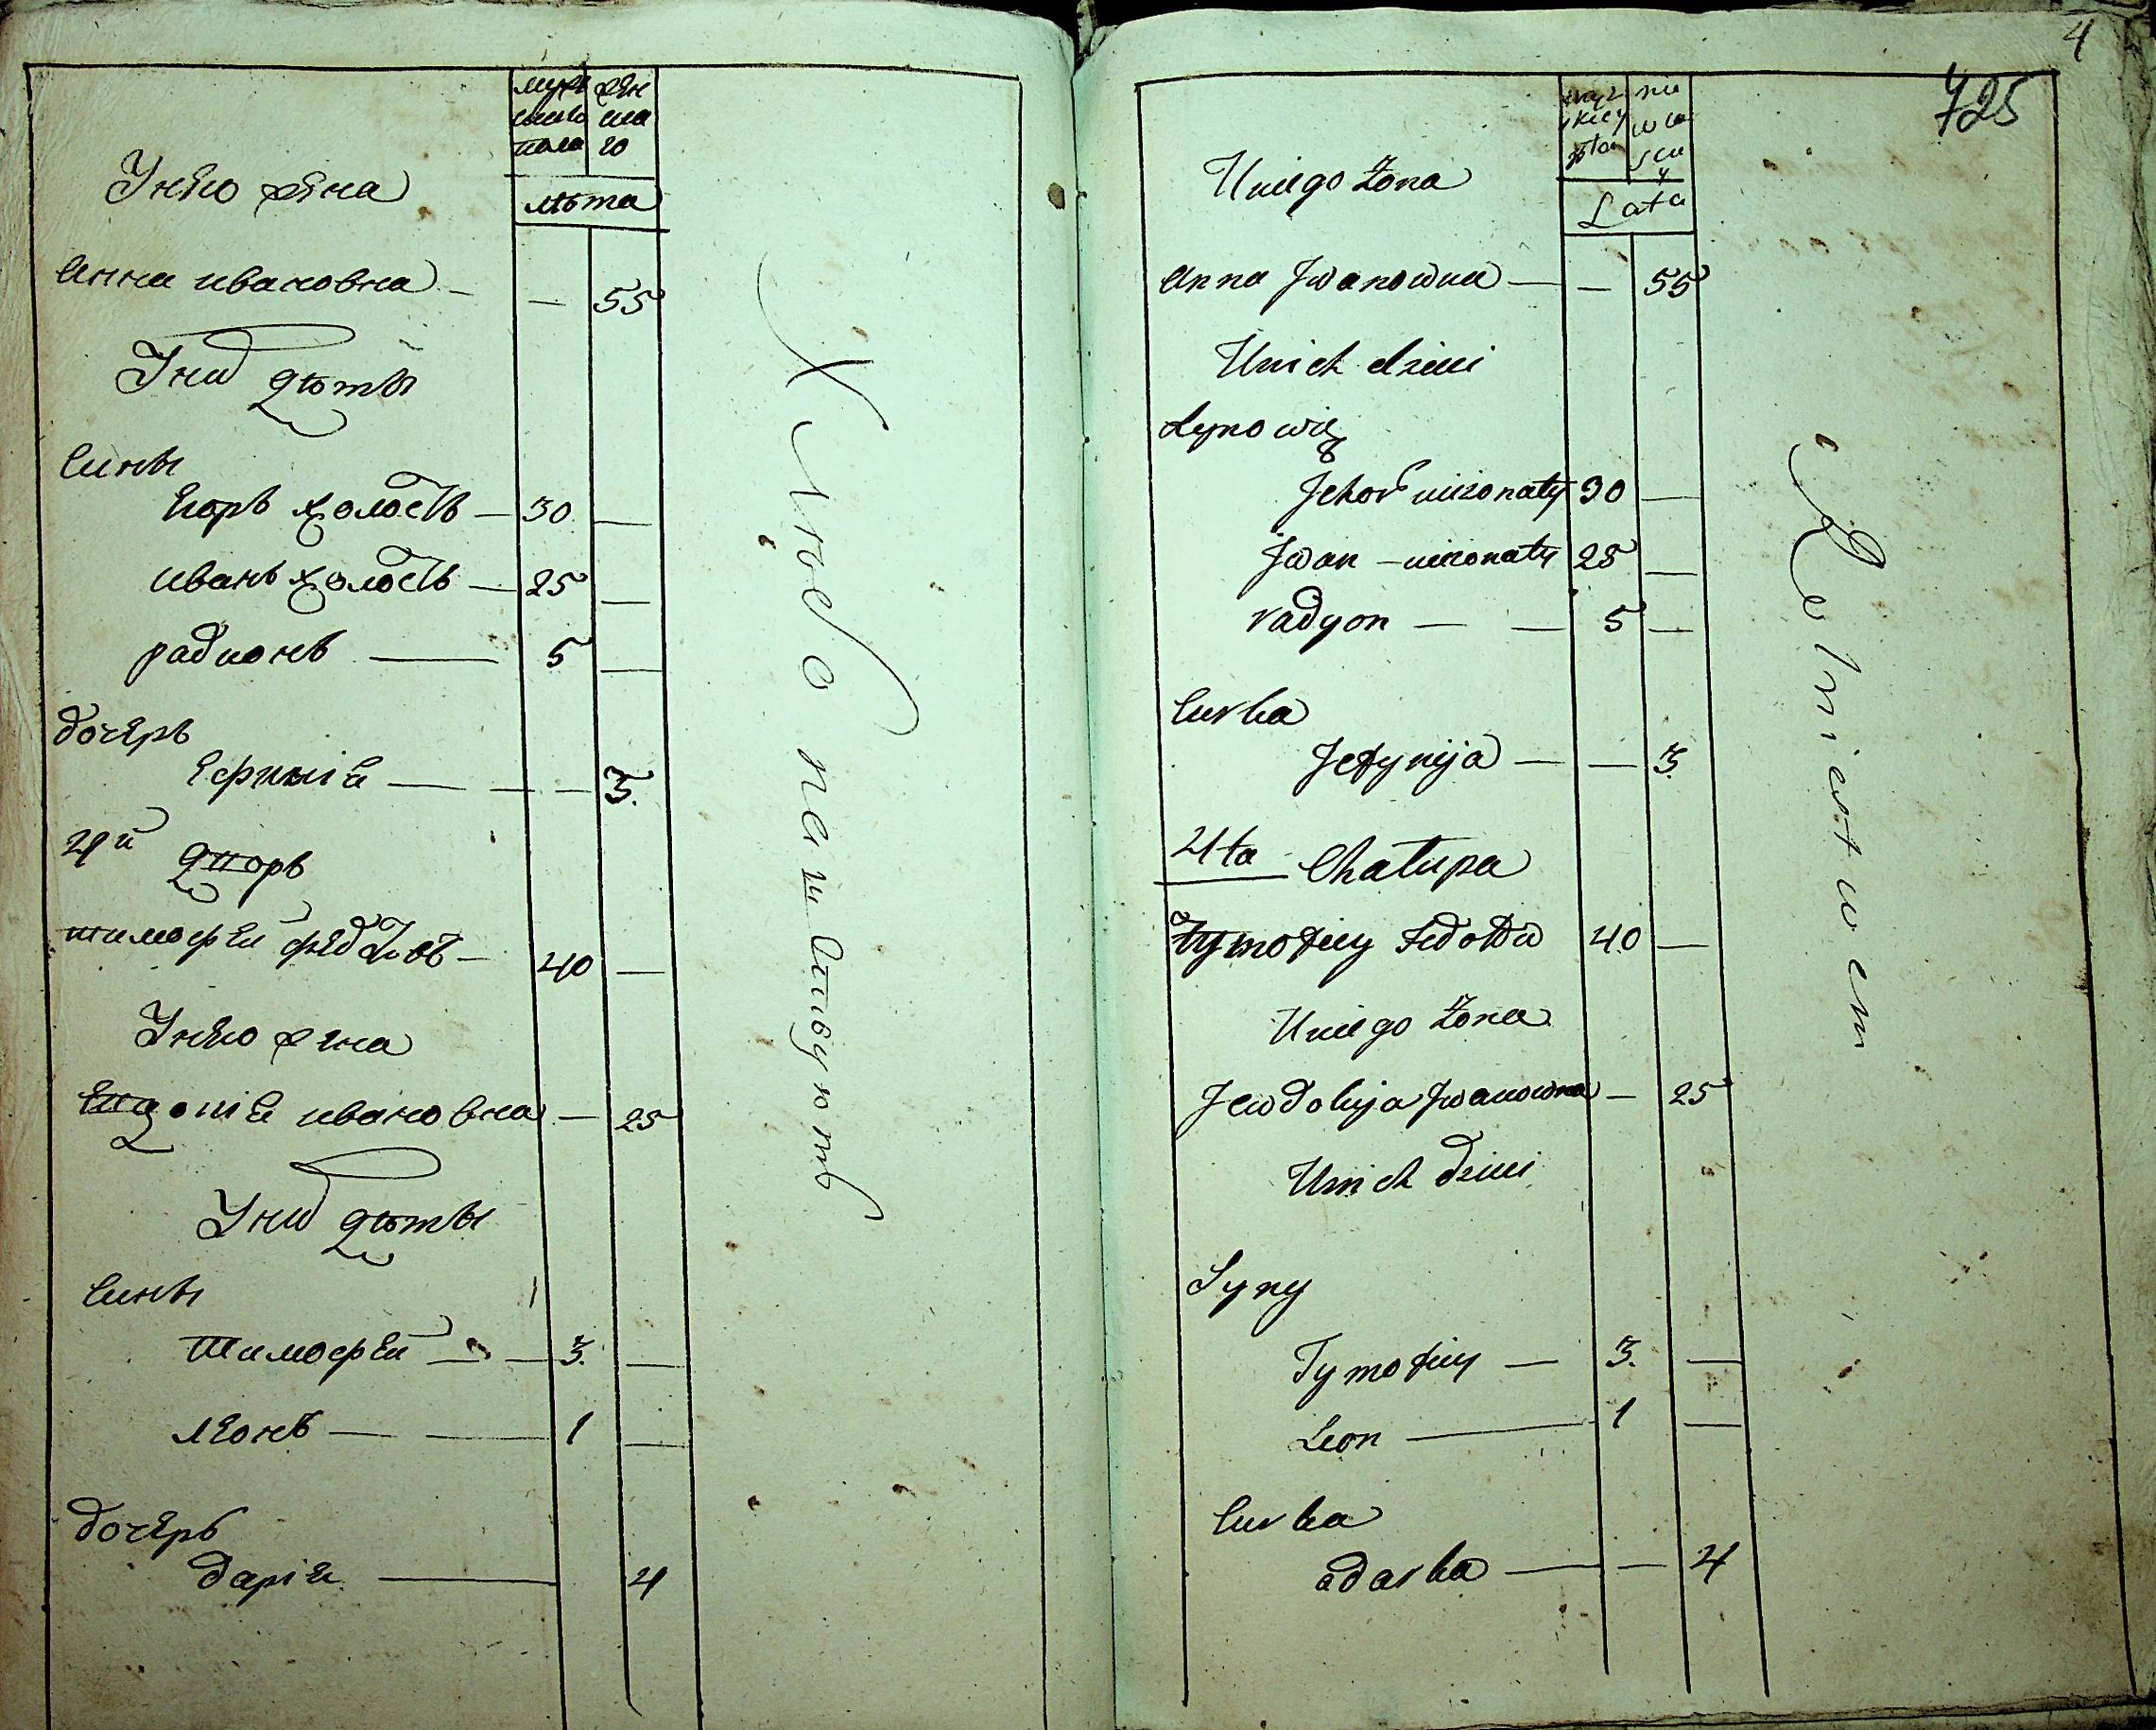 мужеска пола
женска го
Лѣта
Унего жена
Анна ивановна — — 55
Уних дѣты
Сины
Егоръ холостъ — 30 —
иванъ холостъ — 25 —
радионъ — 5 —
дочеръ
Ефиміе — — — 3.
4й дворъ
тимофей федотовъ — 40 —
Унего жена
Евдокіе ивановна — 25
Уних дѣты
Сины
Тимофей — — 3. —
леонъ — — 1 —
дочеръ
даріе — 4
Хлѣбопашствуютъ
4
725
męz kiey płci
nie wia scie y
Lata
Uniego żona
Anna Jwanowna — — 55
Unich dzieci
Synowie
Jehor nieżonaty 30 —
Jwan — nieżonaty 25 —
radyon — — 5 —
Curka
Jefynija — — 3.
4ta Chałupa
Tymofiey Fedotow 40 —
Uniego żona
Jewdokija Jwanowna — 25
Unich dzieci
Syny
Tymofiey — 3. —
Leon — 1 —
Curka
odarka — — 4
Rolnictwem